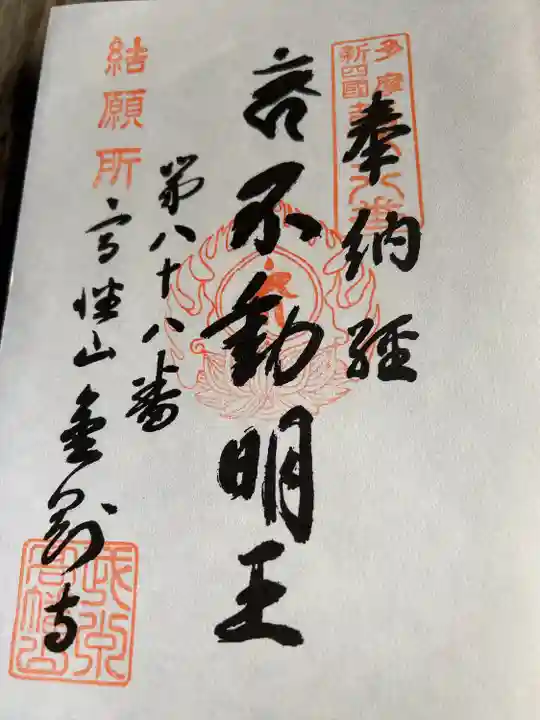 多摩
新四國
八十八
奉納経
不動明王
第八十八番
結願所
山金剛寺
武州
高幡山